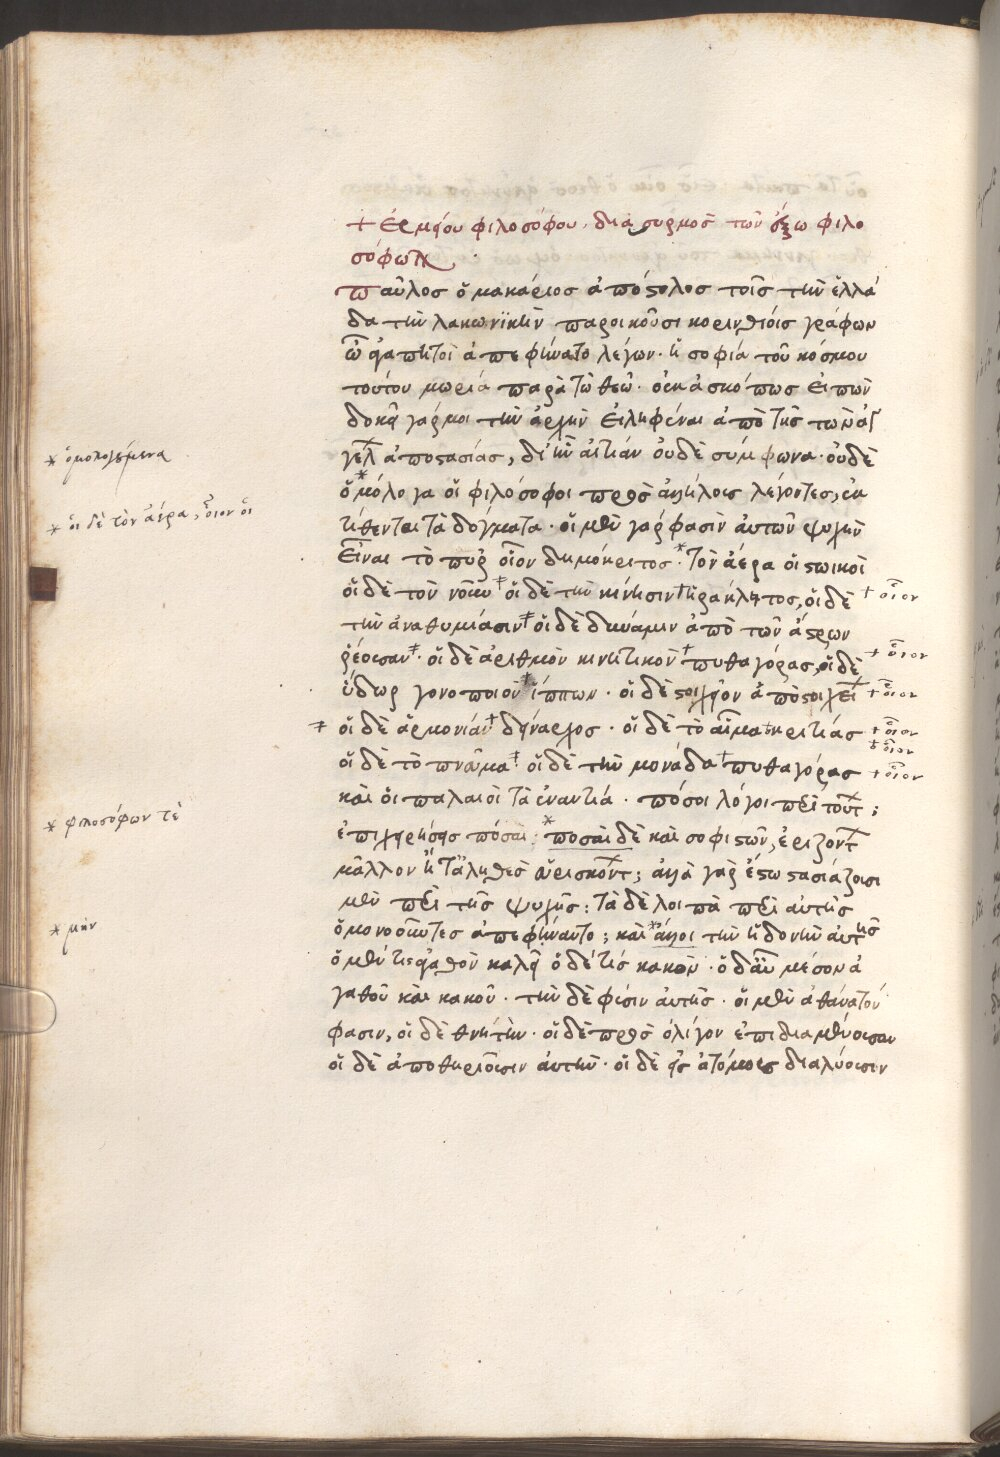 + Ἑρμείου φιλοσόφου, διασυρμὸς τῶν ἔξω φιλο
σόφων.
Παῦλος ὁ μακάριος ἀπόστολος τοῖς τὴν ἑλλά
δα τὴν λακωνϊκὴν παροικοῦσι κορινθίοις γράφων
ὦ ἀγαπητοὶ ἀπεφήνατο λέγων· ἡ σοφία τοῦ κόσμου
τούτου μωρία παρὰ τῷ θεῷ· οὐκ ἀσκόπως εἰπὼν
δοκεῖ γάρ μοι τὴν ἀρχὴν εἰληφέναι ἀπὸ τῆς τῶν ἀγ
γέλ ἀποστασίας, δι' ἣν αἰτίαν οὐδὲ σύμφωνα· οὐδὲ
* ὁμολογούμενα
ὁ*μόλογα οἱ φιλόσοφοι πρὸς ἀλλήλοις λέγοντες, ἐκ
* οἱ δὲ τὸν ἀέρα, οἷον οἱ
τίθενται τὰ δόγματα· οἱ μὲν γάρ φασιν αὐτῶν ψυχὴν
εἶναι τὸ πῦρ οἷον δημόκριτος·* τὸν ἀέρα οἱ στωικοὶ
οἱ δὲ τὸν νοῦν + οἱ δὲ τὴν κίνησιν + ἡράκλητος, οἱ δὲ + οἷον
τὴν ἀναθυμίασιν + οἱ δὲ δύναμιν ἀπὸ τῶν ἄστρων
ῥέουσαν + · οἱ δὲ ἀριθμὸν κινητικὸν + πυθαγόρας, οἱ δὲ + οἷον
ὕδωρ γονοποιὸν + ἵππων · οἱ δὲ στοιχεῖον ἀπὸ στοιχεί + οἷον
+ οἱ δὲ ἁρμονίαν + δείναρχος · οἱ δὲ τὸ αἷμα + κριτίας + οἷον
+ οἷον
οἱ δὲ τὸ πνεῦμα + οἱ δὲ τὴν μονάδα + πυθαγόρας + οἷον
καὶ οἱ παλαιοὶ τὰ ἐναντία · πόσοι λόγοι περὶ τούτ ;
* φιλοσόφων τὲ
ἐπιχειρήσεις πόσαι; * ποσαὶ δὲ καὶ σοφιστῶν, ἐριζοντ
μᾶλλον ἢ τἀληθὲς εὑρισκοντ; ἀλλὰ γὰρ ἔστω στασιάζουσι
μὲν περὶ τῆς ψυχῆς; τὰ δὲ λοιπὰ περὶ αὐτῆς
* μὴν
ὁμονοοῦντες ἀπεφήναντο; καὶ * ἄλλοι τὴν ἡδονὴν αὐτῆς
ὁ μέν τις ἀγαθὸν καλεῖ ὁ δέ τις κακὸν· ὁ δ' αὖ μέσον ἀ
γαθοῦ καὶ κακοῦ · τὴν δὲ φύσιν αὐτῆς · οἱ μὲν ἀθάνατόν
φασιν, οἱ δὲ θνητὴν · οἱ δὲ πρὸς ὀλίγον ἐπιδιαμένουσαν
οἱ δὲ ἀποθηριοῦσιν αὐτὴν · οἱ δὲ εἰς ἀτόμους διαλύουσιν